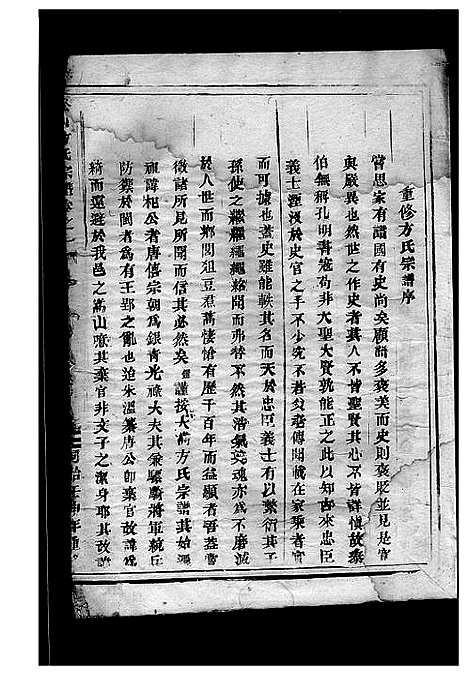 重修方氏宗譜序
嘗思家有譜國有史尚矣顧譜多褒美而史則褒貶並見是官
與嚴異也然世之作史者其人不皆聖賢其書不皆詳慎故秦
伯無稱孔明書寇苟非大聖大賢就能正之此以知古來忠臣
義士湮没於史官之手不少先不若父老傳聞載在家乘者實
而可據也蓋史雖能軼其名而天於忠臣義士有以繁衍其子
孫使之繼繼繩繩綿綿而弗替不然其浩氣英魂亦為不磨滅
於人世而鄉閭俎豆君蒿悽愴有歷千百年而益顯者吾蓋嘗
徵諸所見所聞而信其必然矣謹按大嵩方氏宗譜其始遷
祖諱 相公者唐僖宗朝為銀青光祿大夫其兼驃騎將軍統兵
防禦於閩者為有王郢之亂也迨朱溫纂唐公卽棄官故諱為
綺而還遊於我邑之嵩山噫其棄官非文子之潔身耶其改諱
方氏宗譜卷之
同治壬申年重